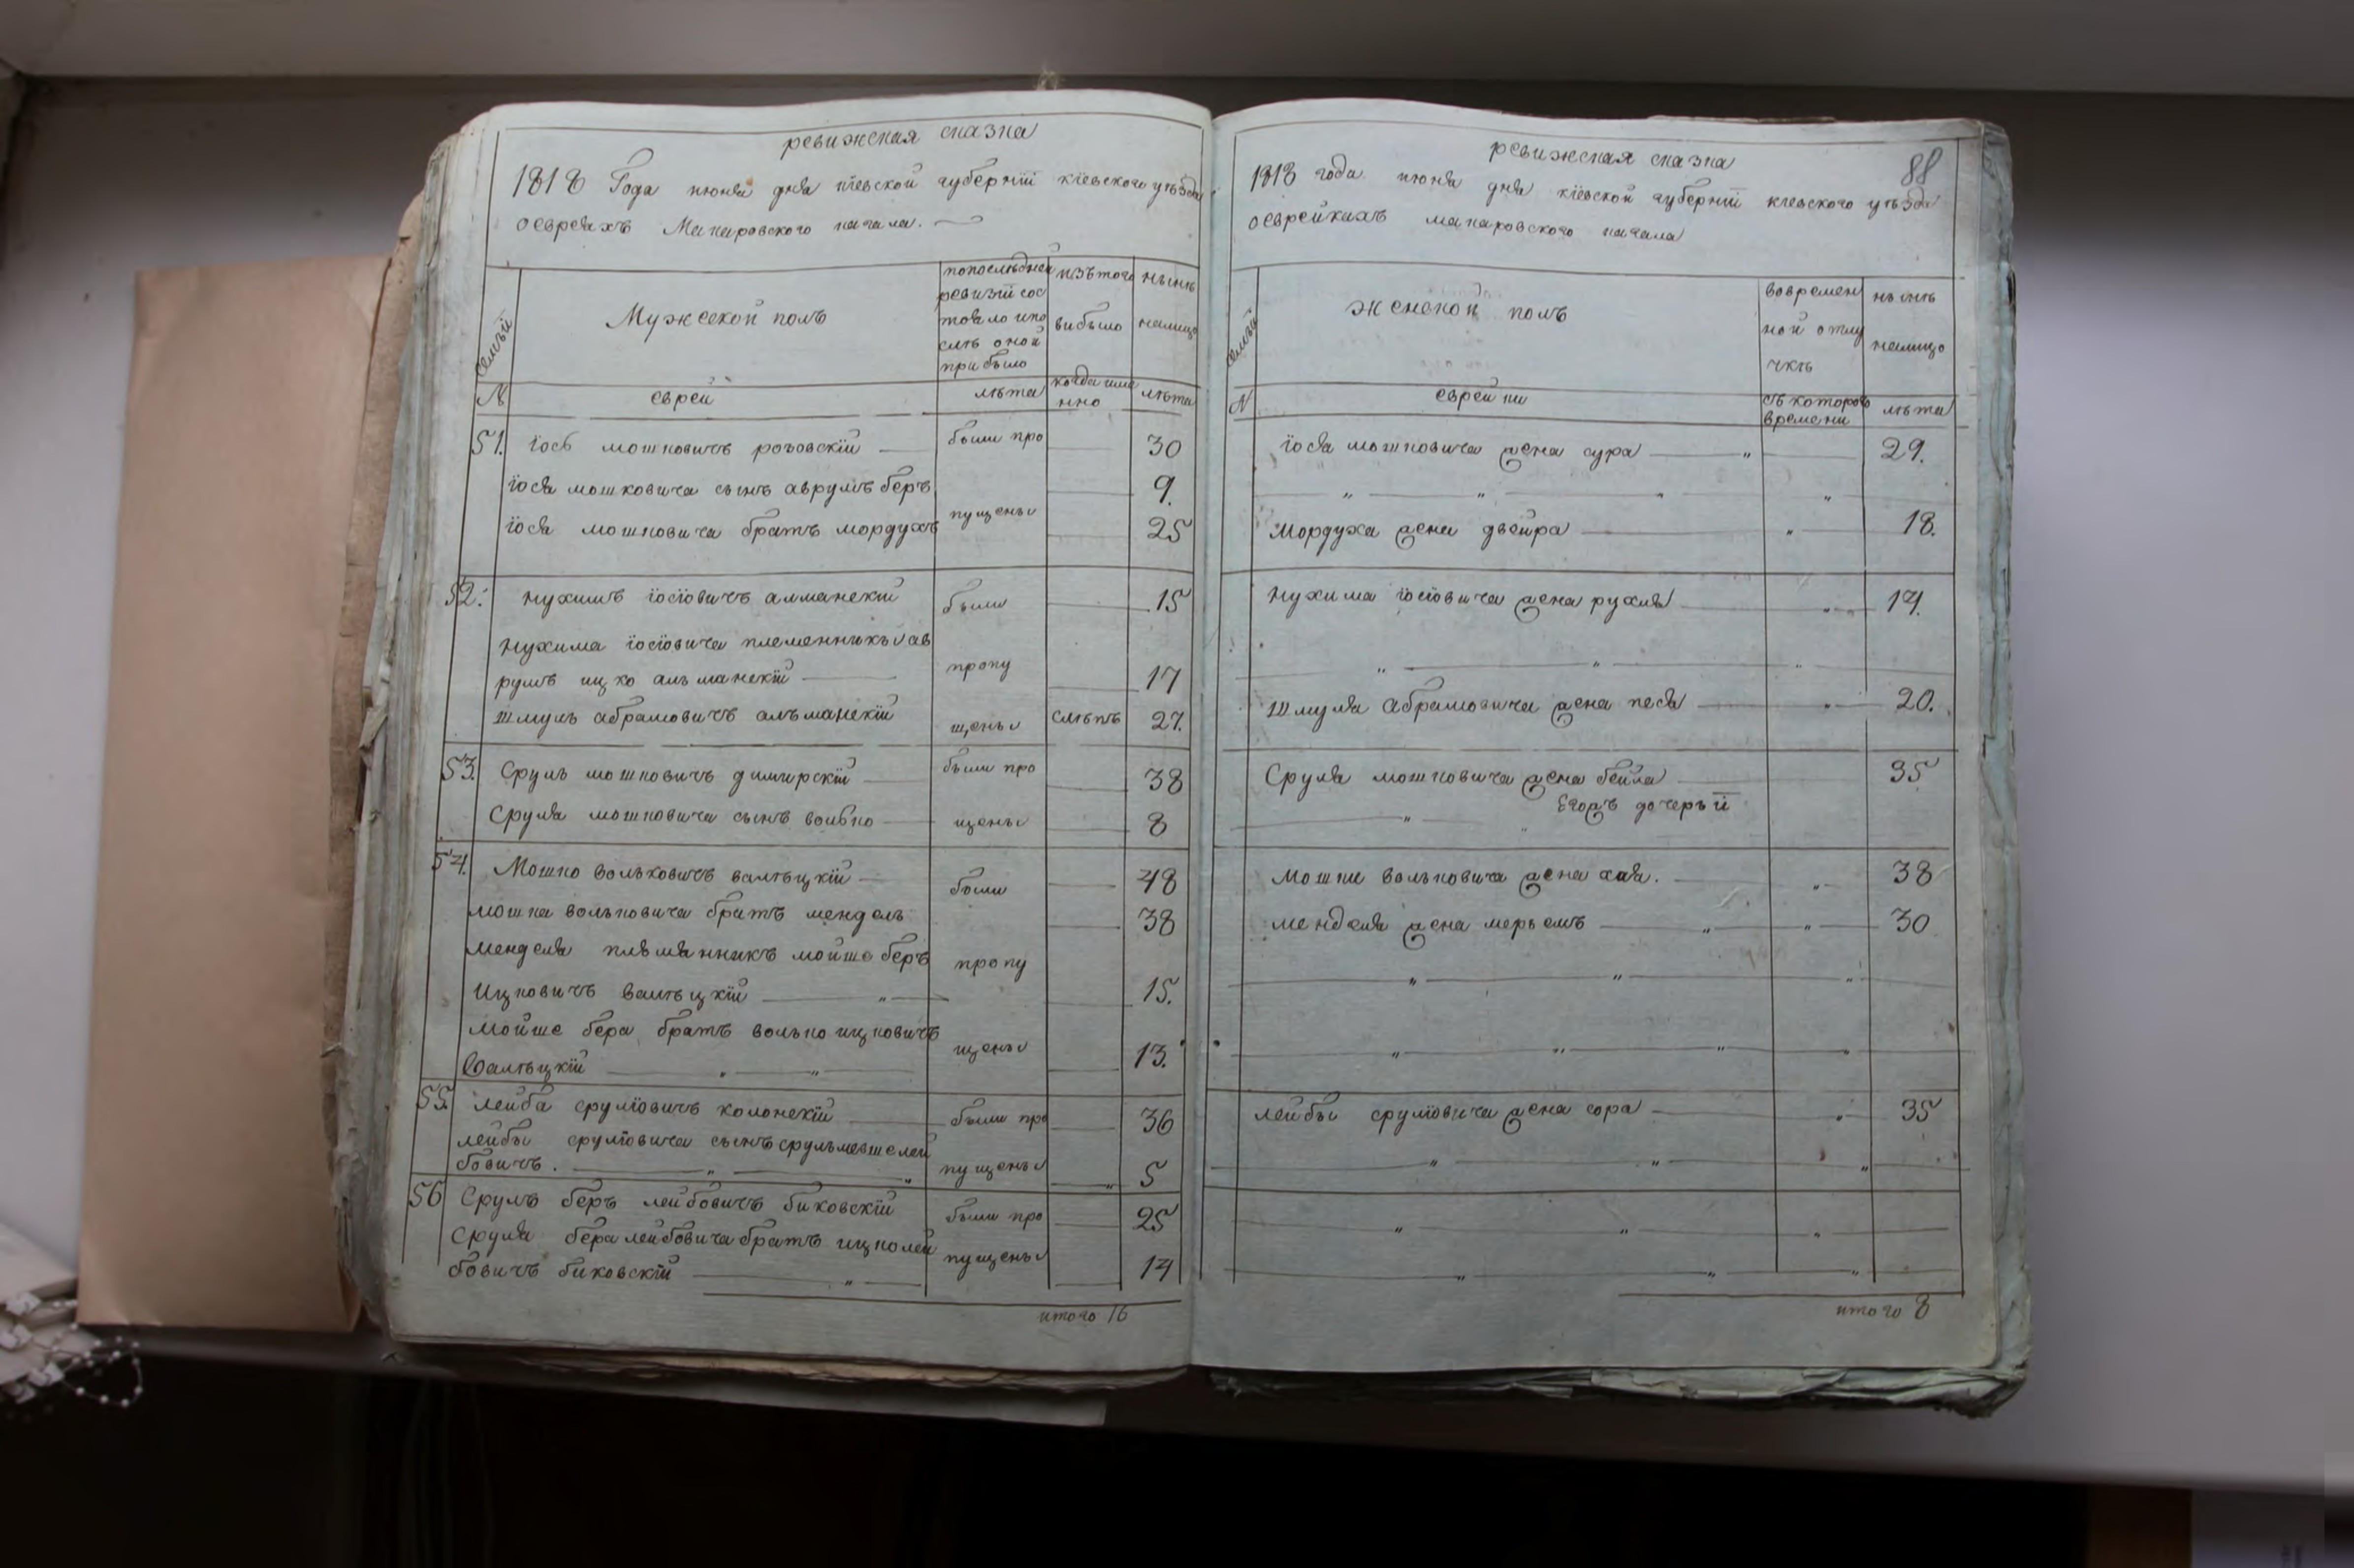 ревижская сказка
1818 Года июня дня кіевской губерніи кіевского уѣзда
о евреяхъ Макаровского кагала.
семьи
Мужеской полъ
по последней
ревизіи сос
тояло и по
слѣ оной
прибыло
изъ того
выбыло
нынѣ
налицо
№
еврей
лѣта
когда име
нно
лѣта
51. іось мошковичъ роговскій были про 30
іося мошковича сынъ аврумъ беръ 9.
іося мошковича братъ мордухъ пущены 25
52. нухимъ іосіовичъ алманскій были 15
нухима іосіовича племенникъ ав
румъ ицко альманскій пропу 17
шмуль абрамовичъ альманскій щены слѣпъ 27.
53. Сруль мошковичъ димирскій были про 38
Сруля мошковича сынъ волько щены 8
54. Мошко вольковичъ валѣцкій были 48
мошка вольковича братъ мендель 38
менделя плямянникъ мойше беръ пропу
ицковичъ валѣцкій 15.
мойше бера братъ волько ицковичъ щены
валѣцкій 13.
55. лейба сруліовичъ колонскій были про 36
лейбы сруліовича сынъ срульмевше лей
бовичъ. пущены 5
56 Сруль беръ лейбовичъ биковскій были про 25
Сруля бера лейбовича братъ ицко лей
бовичъ биковскій пущены 14
итого 16
ревижская сказка 88
1818 года июня дня кіевской губерніи кіевского уѣзда
о еврейкахъ макаровского кагала
семьи
женской полъ
во времен
ной отлу
чкѣ
нынѣ
налицо
№
еврейки
съ которого
времени
лѣта
іося мошковича жена сура 29.
Мордуха жена двейра 18.
Нухима іосіовича жена рухля 14.
Шмуля Абрамовича жена песя 20.
Сруля мошковича жена бейла 35
Егожъ дочерьй
Мошки вольковича жена хая. 38
менделя жена меръемъ 30
лейбы сруліовича жена сора 35
итого 8